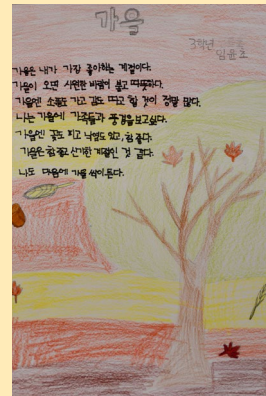 가을
3학년
임윤초
가을은 내가 가장 좋아하는 계절이다.
가을이 오면 시원한 바람이 불고 따뜻하다.
가을엔 소풍도 가고 감도 따고 할 것이 정말 많다.
나는 가을에 가족들과 풍경을 보고싶다.
가을엔 꽃도 피고 낙엽도 있고, 참 좋다.
가을은 참 좋고 신기한 계절인 것 같다.
나도 마음에 가을 싹이 튼다.